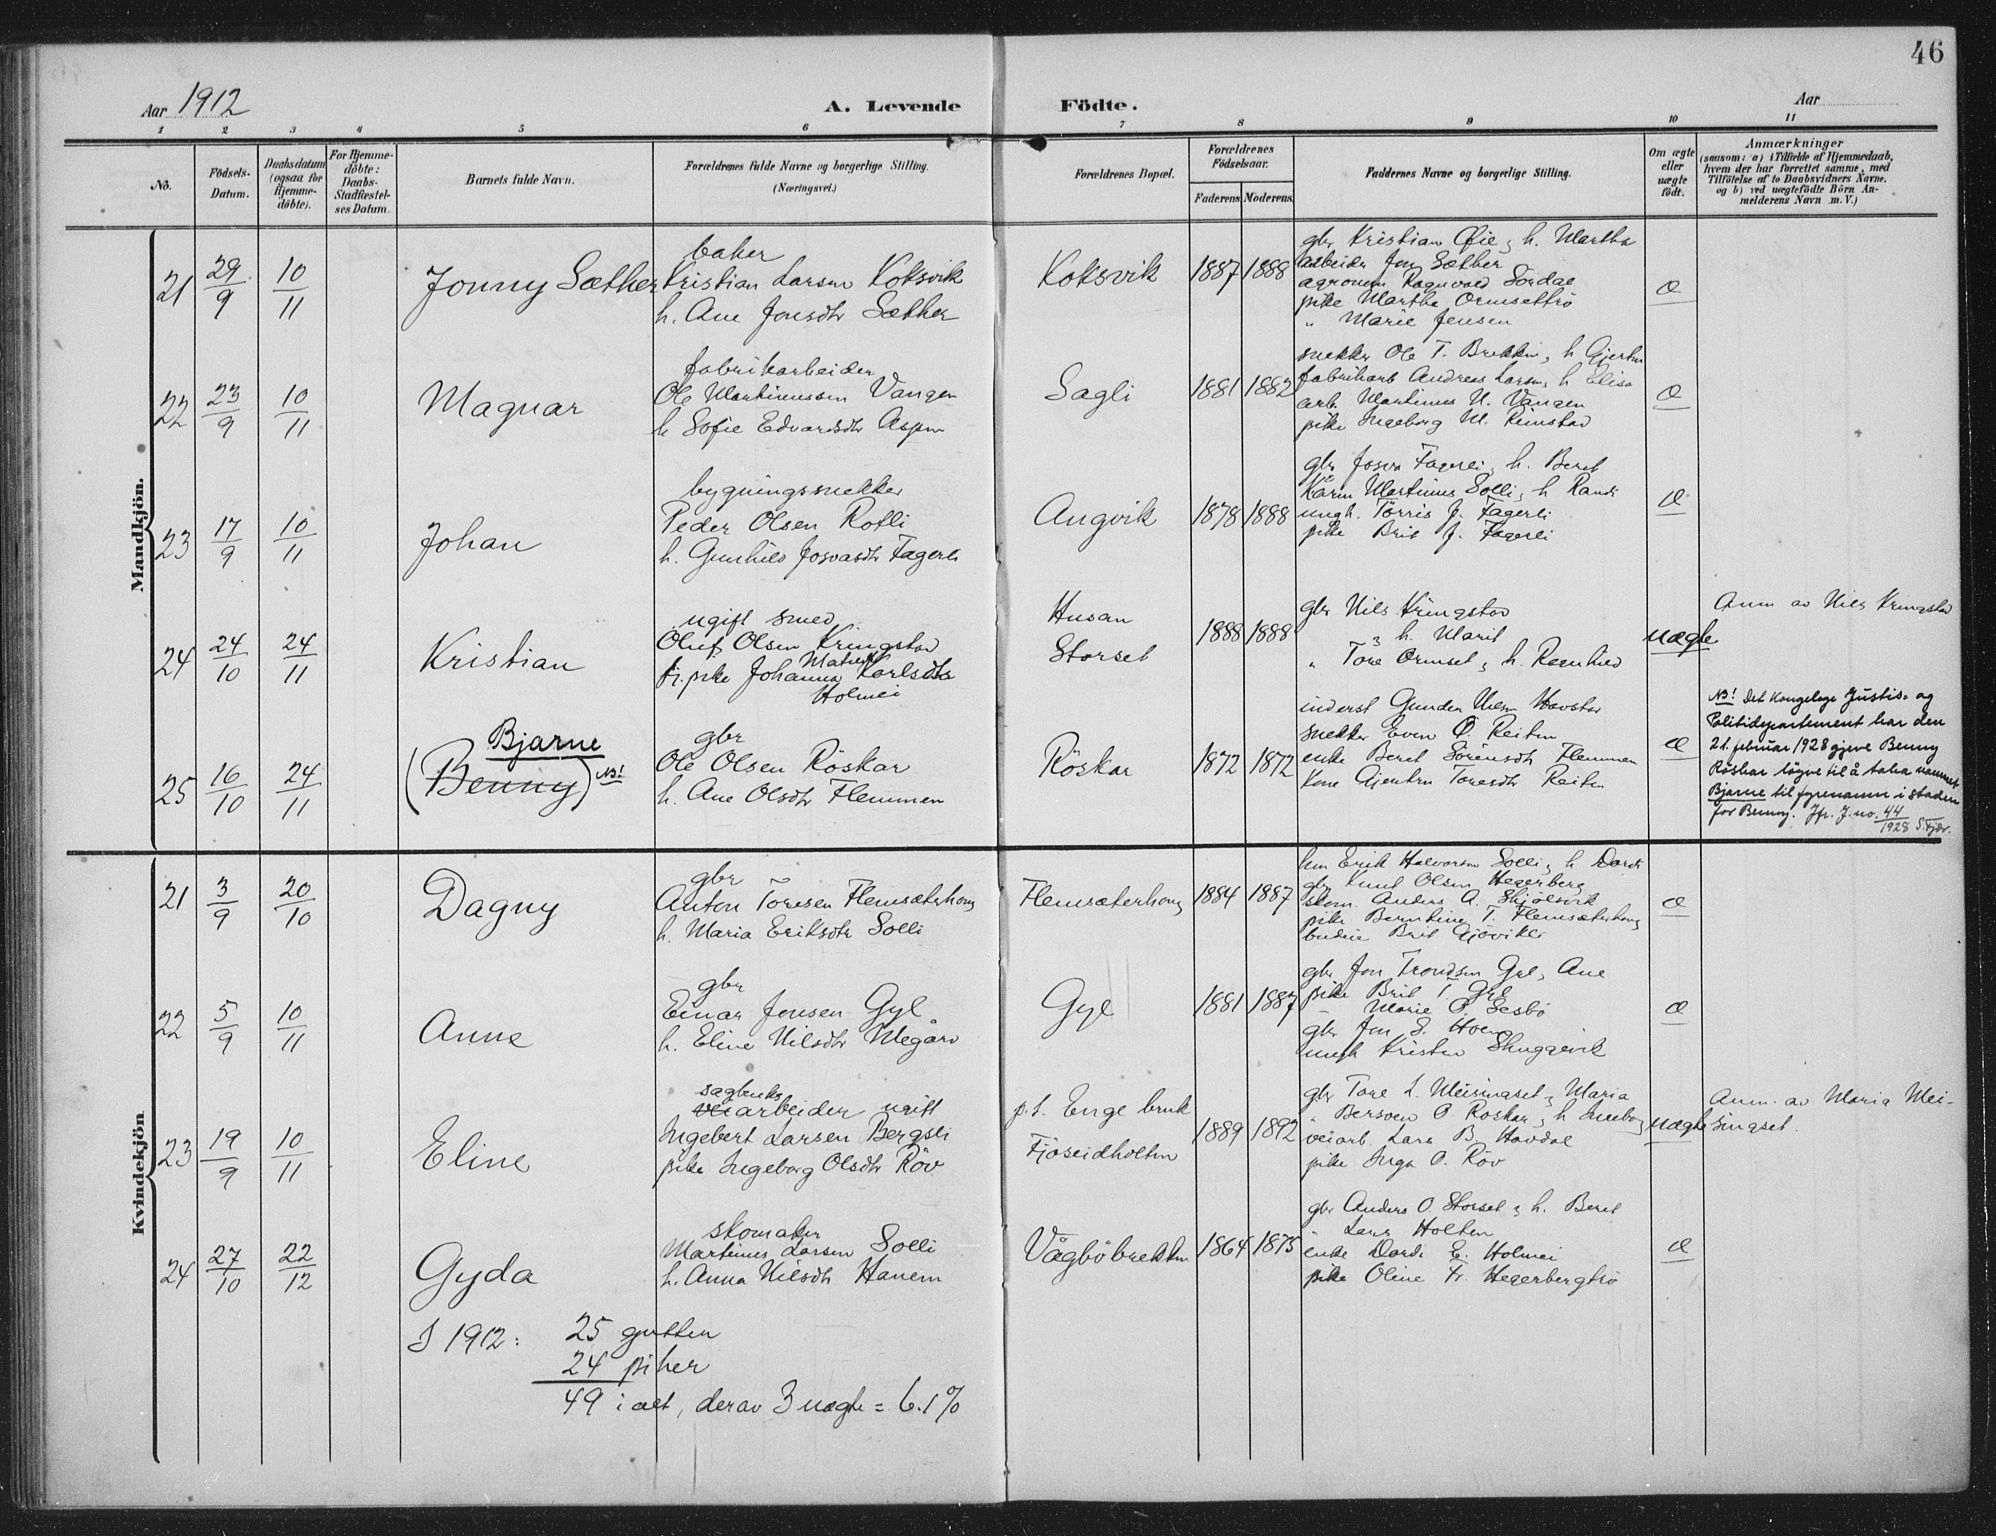 46
Aar 1912
A. Levende Födte.
Aar
1 2 3 4 5 6 7 8 9 10 11
No.
Födsels-Datum.
Daabsdatum (ogsaa for Hjemme-döbte).
For Hjemme-döbte: Daabs-Stadfæstel-ses Datum.
Barnets fulde Navn.
Forældrenes fulde Navne og borgerlige Stilling. (Næringsvei.)
Forældrenes Bopæl.
Forældrenes Födselsaar.
Faderens Moderens
Faddernes Navne og borgerlige Stilling.
Om ægte eller uægte födt.
Anmærkninger
(saasom: a) i Tilfælde af Hjemmedaab,
hvem der har forrettet samme, med
Tilföielse af to Daabsvidners Navne.
og b) ved uægtefödte Börn An-
melderens Navn m. V.)
Mandkjön.
21 29/9 10/11 Jonny Sæther
baker
Kristian Larsen Koksvik
h. Ane Jonsdtr Sæther
Koksvik 1887 1888
gbr Kristian Øie, h. Martha
arbeider Jon Sæther
agronom Ragnvald Sördal
pike Martha Ormsettrö
" Marie Jensen
æ
22 23/9 10/11 Magnar
fabrikarbeider
Ole Martinussen Vangen
h Sofie Edvardsdtr Aspen
Sagli 1881 1882
snekker Ole T. Brekken, h Gjertru
fabrikarb Andreas Larsen, h Elisa
arb. Martinus N. Vangen
pike Ingeborg M. Reinstad
æ
23 17/9 10/11 Johan
bygningssnekker
Peder Olsen Rotli
h. Gunhild Josvasdtr Fagerli
Angvik 1878 1888
gbr Josva Fagerli, h. Beret
Kårm Martinus Solli, h Randi
ungk. Törris J. Fagerli
pike Brit J. Fagerli
æ
24 24/10 24/11 Kristian
ugift smed
Oluf Olsen Kringstad
fr. pike Johanna Karlsdtr
Holmei
Husan
Storset
1888 1888
gbr Nils Kringstad
" h. Marit
" Tore Ormset, h. Ragnhild
uægte
Anm av Nils Kringstad
25 16/10 24/11
Bjarne
(Benny) NB!
gbr
Ole Olsen Röskar
h. Ane Olsdtr Flemmen
Röskar 1872 1872
inderst Gunder Nilsen Havstad
snekker Even O. Reiten
enke Beret Sörensdtr Flemmen
Kone Gjertru Toresdtr Reiten
æ
NB! Det Kongelege Justis- og
Politidepartement har den
21. februar 1928 gjeve Benny
Röskar löyve til å taka namnet
Bjarne til fyrenamn i staden
for Benny. Jfr. J. no. 44/1928 S. Fjær.
Kvindekjön
21 3/9 20/10 Dagny
gbr
Anton Toresen Flemsæterhaug
h. Maria Eriksdtr Solli
Flemsæterhaug 1884 1887
km Erik Halvorsen Solli, h Dordi
gbr Knut Olsen Hegerberg
skom. Anders A. Skjölsvik
pike Berntine T. Flemsæterhaug
budeie Brit Gjöviken
æ
22 5/9 10/11 Anne
gbr
Einar Jonsen Gyl
h. Eline Nilsdtr Megård
Gyl 1881 1887
gbr Jon Trondsen Gyl, Ane
pike Brit T. Gyl
" Marie P. Sesbö
gbr Jon S. Hoem
ungk Kristen Skuggevik
æ
23 19/9 10/11 Eline
sagbruks
veiarbeider ugift
Ingebert Larsen Bergsli
pike Ingeborg Olsdtr Röv
p.t. Enge bruk
Fjöseidholten
1889 1892
gbr Tore L. Meisingset, Maria
" Bersven O. Roskar, h Ingeborg
veiarb. Lars B. Havdal
pike Inga O. Röv
uægte
Anm. av Maria Mei-
singset.
24 27/10 22/12 Gyda
skomaker
Martinus Larsen Solli
h. Anna Nilsdtr Hanem
Vågböbrekken 1864 1875
gbr Anders O. Storset, h. Beret
" Lars Holten
enke Dordi E. Holmei
pike Oline Fr. Hegerbergtrö
æ
I 1912: 25 gutten
24 piker
49 i alt, derav 3 uægte = 6.1%